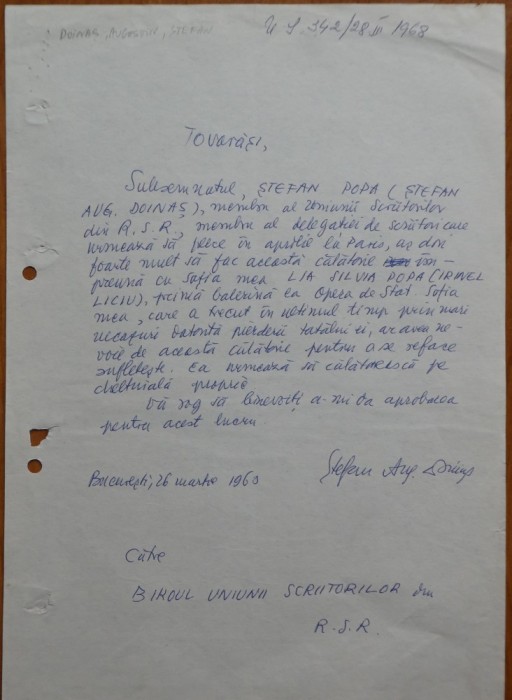 DOINAȘ, AUGUSTIN, ȘTEFAN
U S. 342/28 III 1968
Tovarăși,
Subsemnatul, ȘTEFAN POPA (ȘTEFAN
AUG. DOINAȘ), membru al Uniunii Scriitorilor
din R.S.R., membru al delegației de scriitori care
urmează să plece în aprilie la Paris, aș dori
foarte mult să fac această călătorie îm-
preună cu soția mea LIA SILVIA POPA (IRINEL
LICIU), primă balerină la Opera de Stat. Soția
mea, care a trecut în ultimul timp prin mari
necazuri datorită pierderii tatălui ei, ar avea ne-
voie de această călătorie pentru a se reface
sufletește. Ea urmează să călătorească pe
cheltuială proprie
Vă rog să binevoiți a-mi da aprobarea
pentru acest lucru
București, 26 martie 1968
Ștefan Aug. Doinaș
Către
BIROUL UNIUNII SCRIITORILOR din
R.S.R.